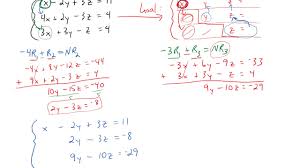 x - 2y + 3z = 11
4x + 2y - 3z = 4
3x + 3y - z = 4
Goal:
-4R1 + R2 = NR2
-4x + 8y - 12z = -44
+ 4x + 2y - 3z = 4
10y - 15z = -40
2y - 3z = -8
-3R1 + R3 = NR3
-3x + 6y - 9z = -33
+ 3x + 3y - z = 4
9y - 10z = -29
x - 2y + 3z = 11
2y - 3z = -8
9y - 10z = -29